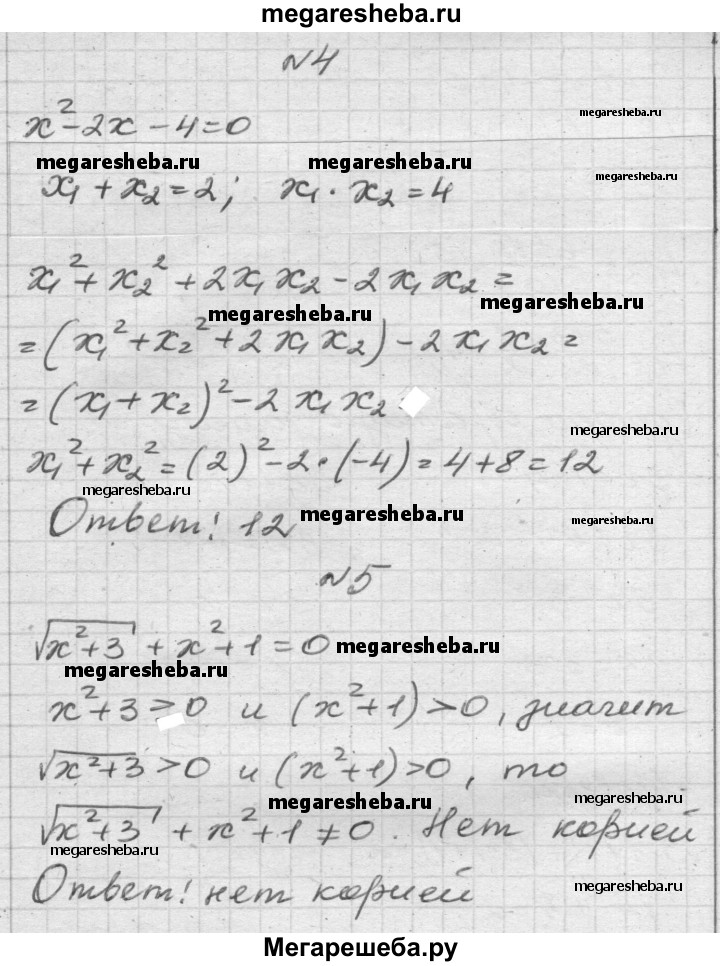 megaresheba.ru
№4
x²-2x-4=0
megaresheba.ru
megaresheba.ru megaresheba.ru megaresheba.ru
x₁+x₂=2; x₁·x₂=4
x₁²+x₂²+2x₁x₂-2x₁x₂=
megaresheba.ru megaresheba.ru
=(x₁²+x₂²+2x₁x₂)-2x₁x₂=
=(x₁+x₂)²-2x₁x₂
megaresheba.ru
x₁²+x₂²=(2)²-2·(-4)=4+8=12
megaresheba.ru
Ответ! 12 megaresheba.ru megaresheba.ru
№5
√x²+3 + x²+1=0 megaresheba.ru
megaresheba.ru megaresheba.ru
x²+3>0 и (x²+1)>0, значит
√x²+3>0 и (x²+1)>0, то
megaresheba.ru megaresheba.ru
√x²+3 + x²+1≠0. Нет корней
megaresheba.ru
Ответ! нет корней megaresheba.ru
Мегарешеба.ру